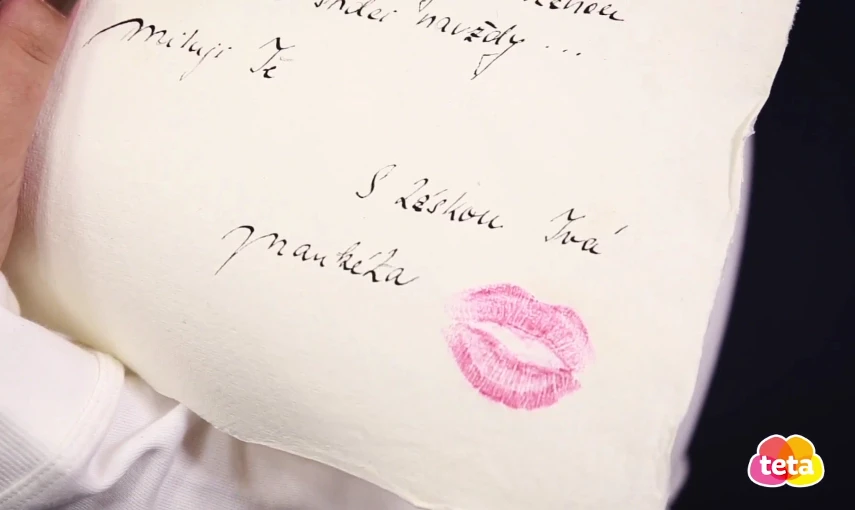 srdci navždy ...
Miluji Tě
S Láskou Tvá
Markéta
teta